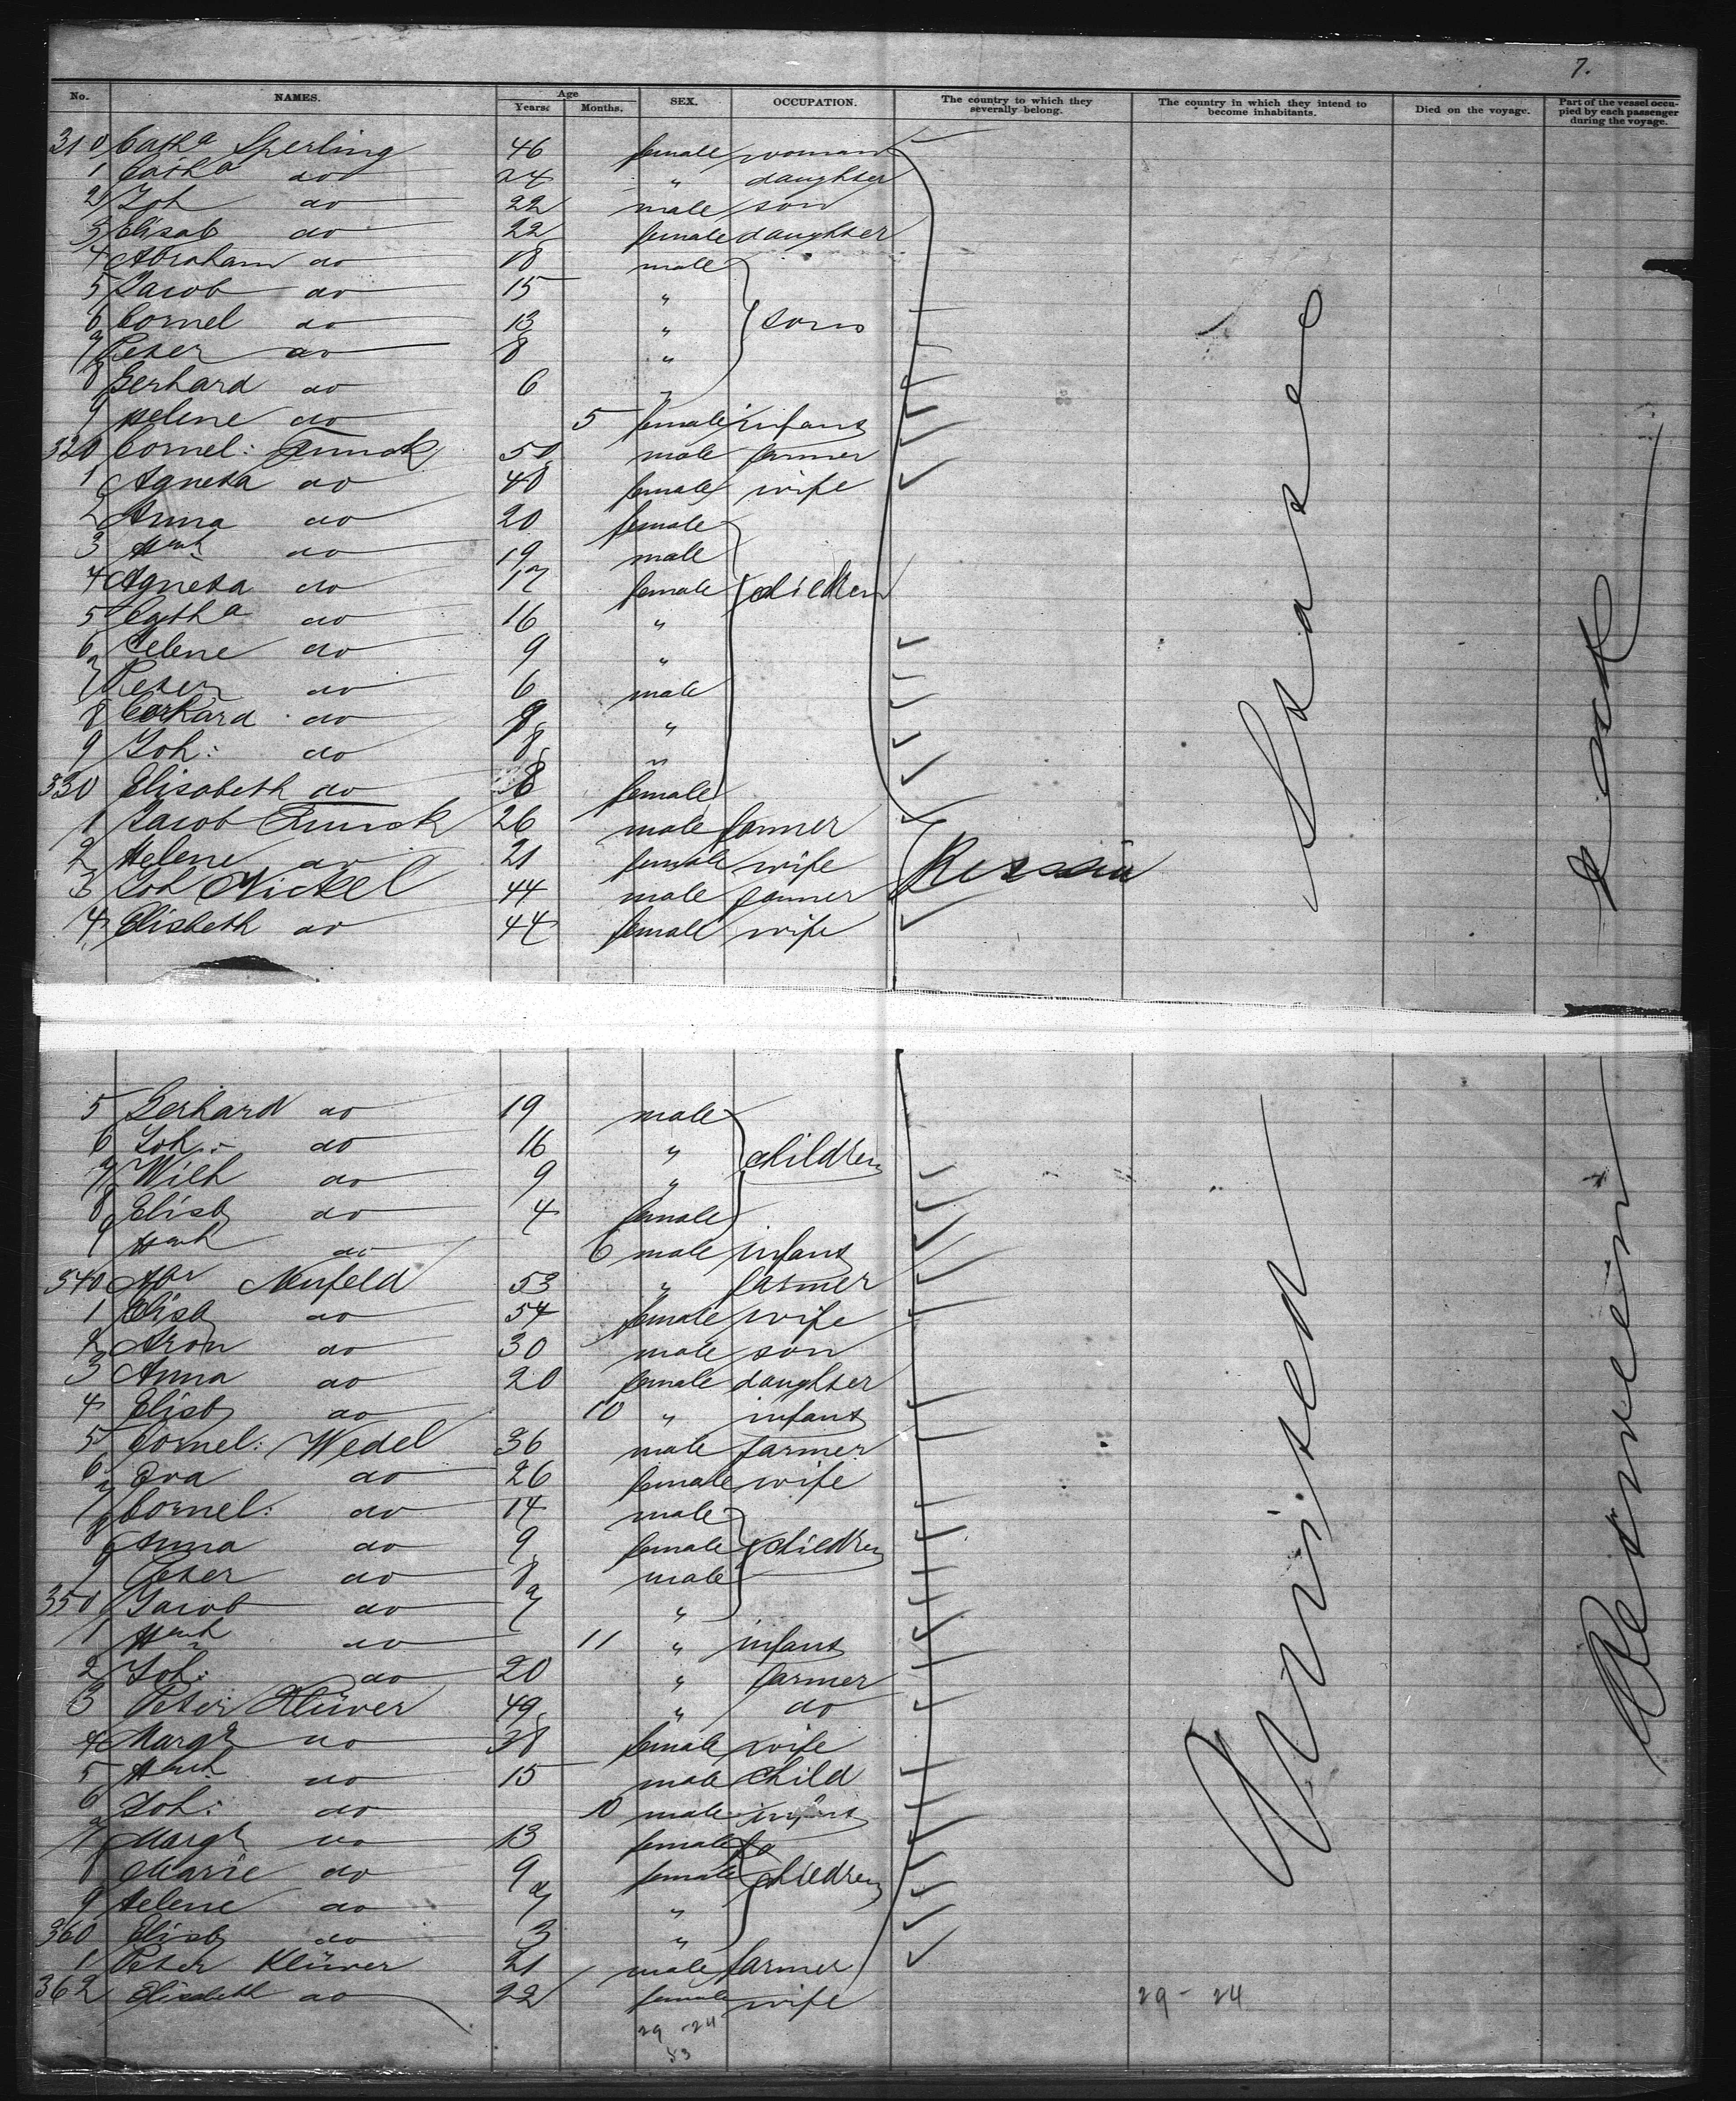 7.
No. NAMES. Age Years. Months. SEX. OCCUPATION. The country to which they severally belong. The country in which they intend to become inhabitants. Died on the voyage. Part of the vessel occupied by each passenger during the voyage.
310 Catha Sperling 46 female woman
1 Catha do 24 " daughter
2 Joh do 22 male son
3 Elisab do 22 female daughter
4 Abraham do 18 male
5 Jacob do 15 "
6 Cornel do 13 " sons
7 Peter do 8 "
8 Gerhard do 6 "
9 Helene do 5 female infant
320 Cornel: 50 male farmer
1 Agneta do 40 female wife
2 Anna do 20 female
3 Hnch do 19 male
4 Agneta do 17 female children
5 Catha do 16 "
6 Helene do 9 "
7 Peter do 6 male
8 Gerhard do "
9 Joh: do 8 "
330 Elisabeth do 8 female
1 Jacob 26 male farmer
2 Helene do 21 female wife Russia
3 Joh Nickel 44 male farmer
4 Elisbeth do 44 female wife
5 Gerhard do 19 male
6 Joh: do 16 " children
7 Wilh do 9 "
8 Elisb do 4 female
9 Hnch do 6 male infant
340 Abr Neufeld 53 " farmer
1 Elisb do 54 female wife
2 Aron do 30 male son
3 Anna do 20 female daughter
4 Elisb do 10 " infant
5 Cornel: Wedel 36 male farmer
6 Eva do 26 female wife
7 Cornel: do 14 male
8 Anna do 9 female children
9 Peter do 8 male
350 Jacob do 7 "
1 Hnch do 11 " infant
2 Joh: do 20 " farmer
3 Peter Klüver 49 " do
4 Margr do 38 female wife
5 Hnch do 15 male child
6 Joh: do 10 male infant
7 Margr do 13 female
8 Marie do 9 female children
9 Helene do 7 "
360 Elisb do 3 "
1 Peter Klüver 21 male farmer
362 Elisabeth do 22 female wife
United States
Between deck
29-24
29-24
53